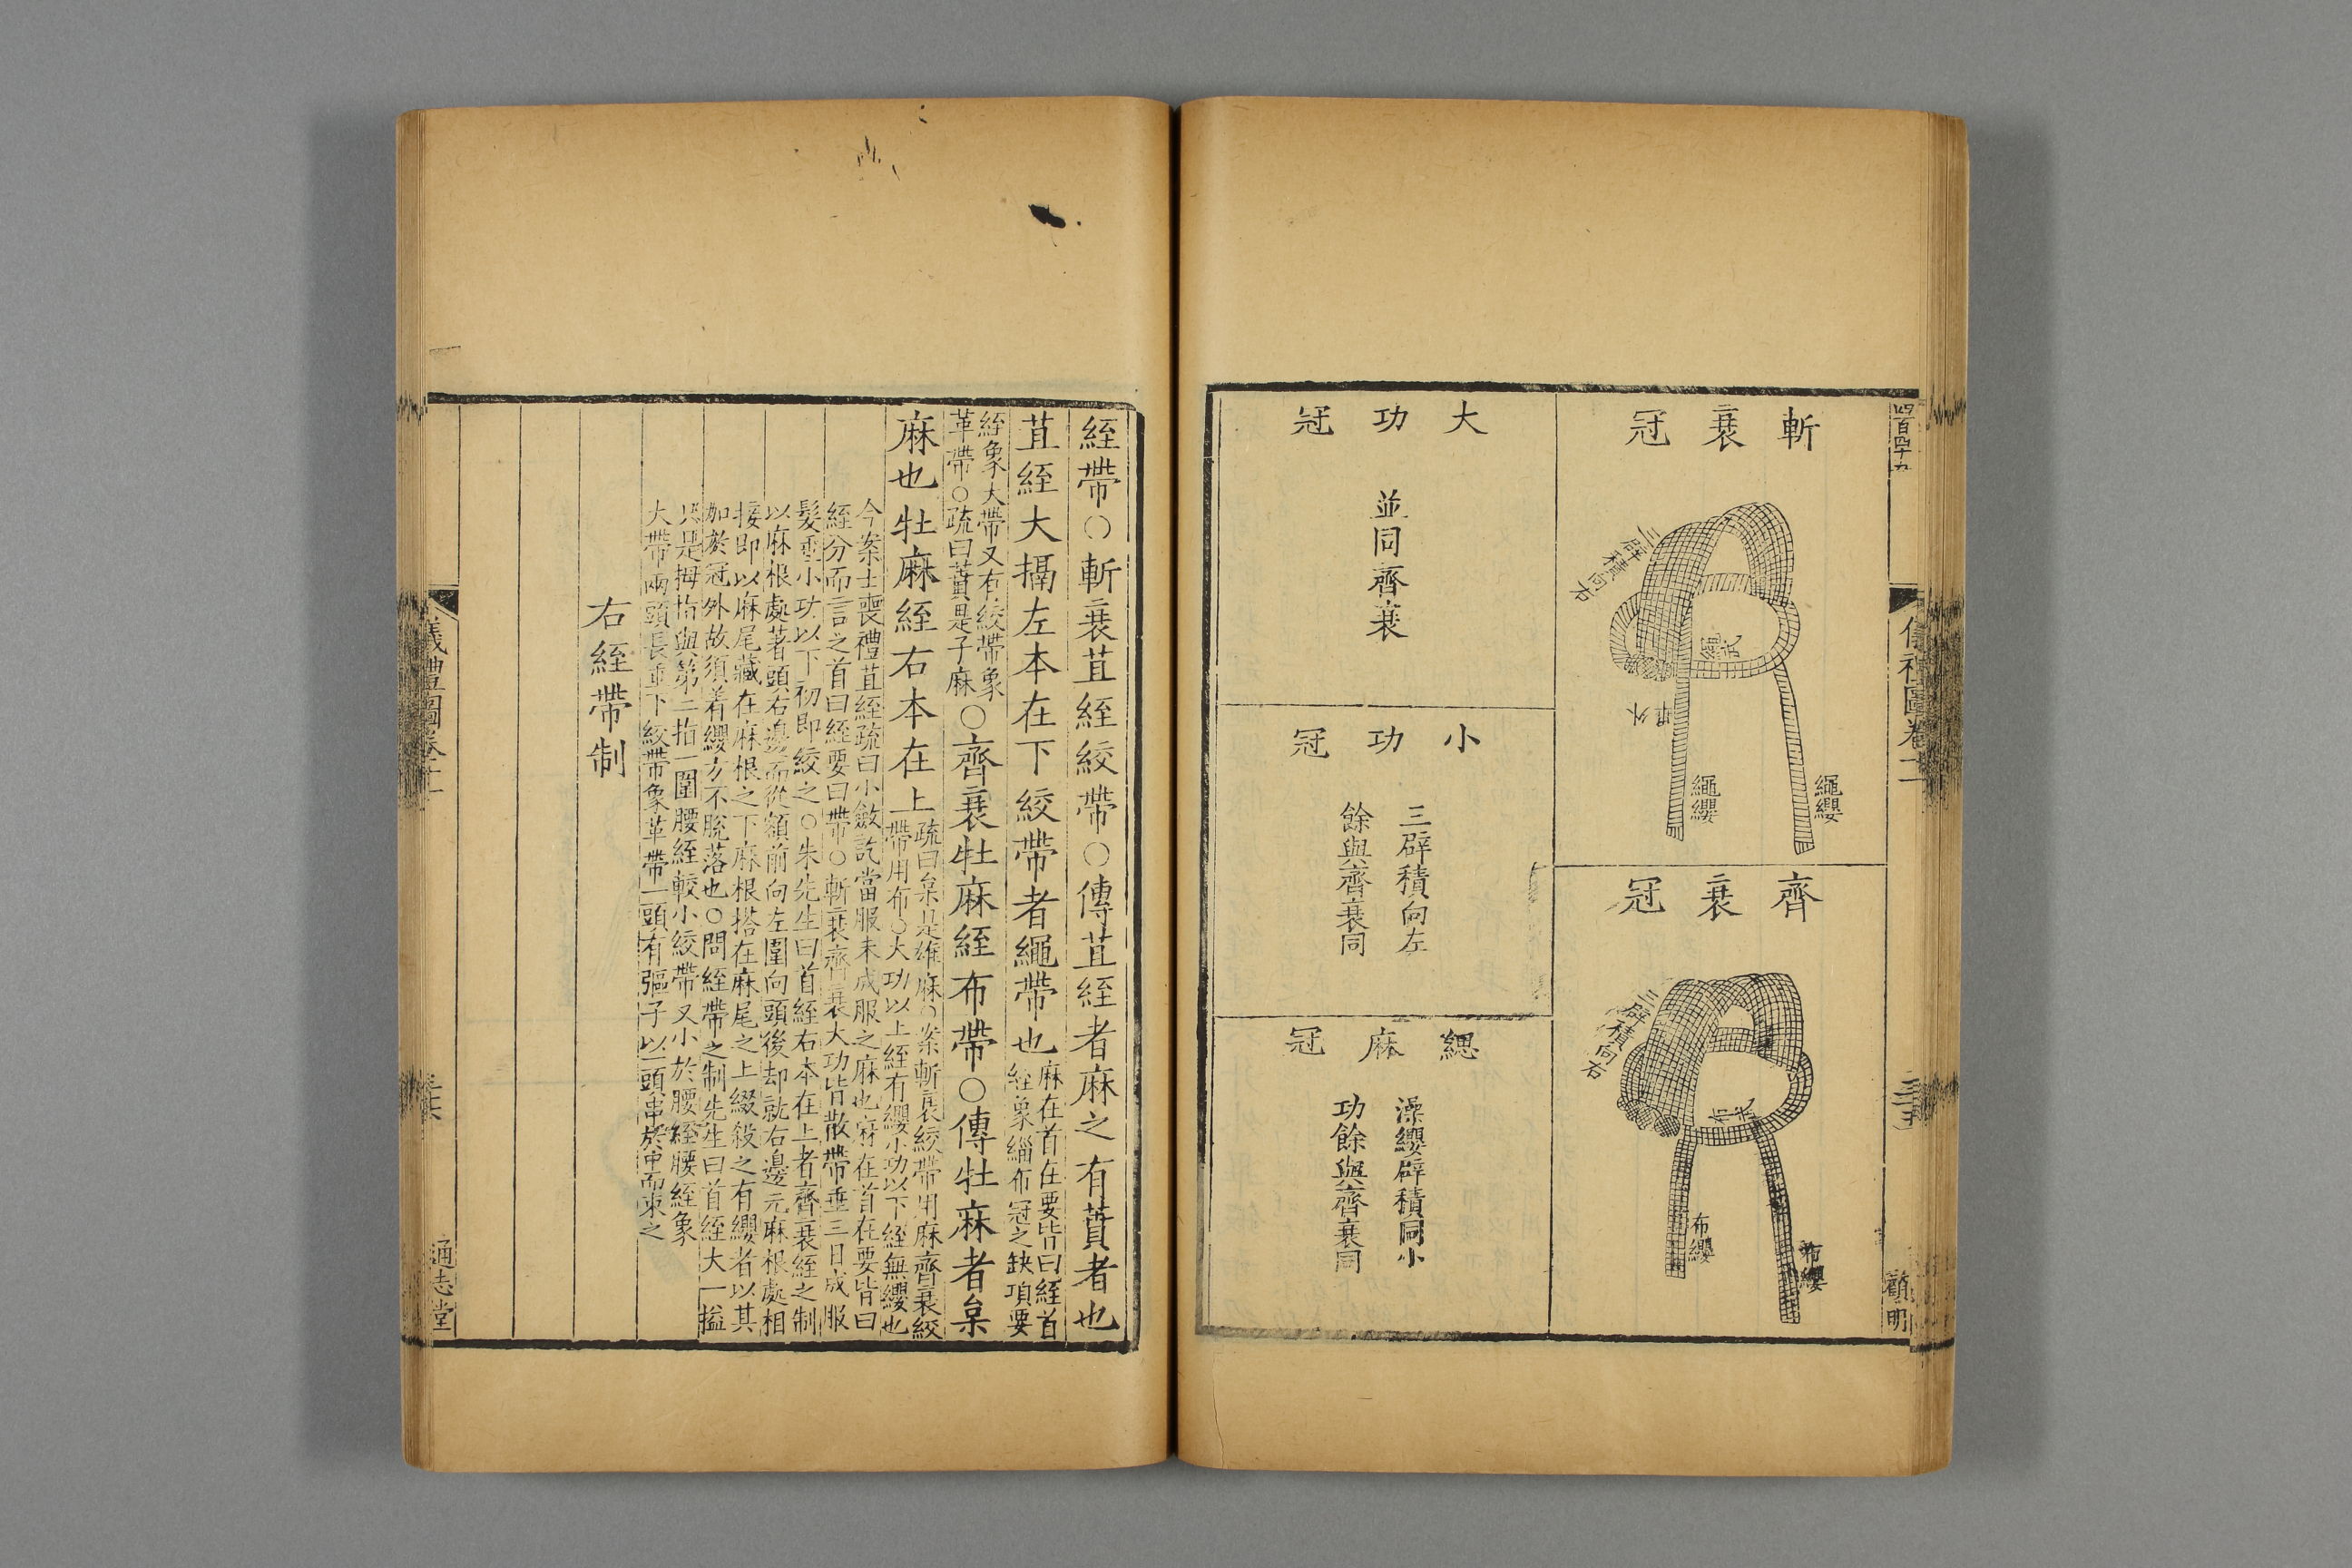 四百四十九
儀禮圖卷十一
三十五
顧明
斬衰冠
三辟積向右
繩武
外畢
繩纓
繩纓
齊衰冠
三辟積向右
布武
布纓
布纓
大功冠
並同齊衰
小功冠
三辟積向左
餘與齊衰同
緦麻冠
澡纓辟積同小
功餘與齊衰同
絰帶○斬衰苴絰絞帶○傳苴絰者麻之有蕡者也
苴絰大搹左本在下絞帶者繩帶也麻在首在要皆曰絰首
絰象緇布冠之缺項要
絰象大帶又有絞帶象
革帶○疏曰蕡是子麻○齊衰牡麻絰布帶○傳牡麻者枲
麻也牡麻絰右本在上疏曰枲是雄麻○案斬衰絞帶用麻齊衰絞
帶用布○大功以上絰有纓小功以下絰無纓也
今案士喪禮苴絰疏曰小斂訖當服未成服之麻也麻在首在要皆曰
絰分而言之首曰絰要曰帶○斬衰齊衰大功皆散帶垂三日成服
髮垂小功以下初即絞之○朱先生曰首絰右本在上者齊衰絰之制
以麻根處著頭右邊而從額前向左圍向頭後却就右邊元麻根處相
接即以麻尾藏在麻根之下麻根搭在麻尾之上綴殺之有纓者以其
加於冠外故須着纓方不脫落也○問絰帶之制先生曰首絰大一搤
只是拇指與第二指一圍腰絰較小絞帶又小於腰絰腰絰象
大帶兩頭長垂下絞帶象革帶一頭有彄子以一頭串於中而束之
右絰帶制
儀禮圖卷十一
三十六
通志堂